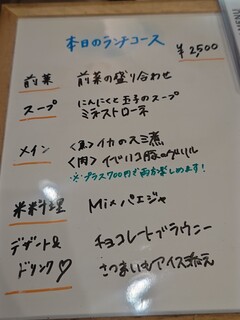 本日のランチコース
¥2,500
前菜 前菜の盛り合わせ
スープ にんにくと玉子のスープ
ミネストローネ
メイン 〈魚〉イカのスミ煮
〈肉〉イベリコ豚のグリル
※プラス700円で両方楽しめます!
米料理 Mixパエジャ
デザート& チョコレートブラウニー
ドリンク♡ さつまいもアイス添え